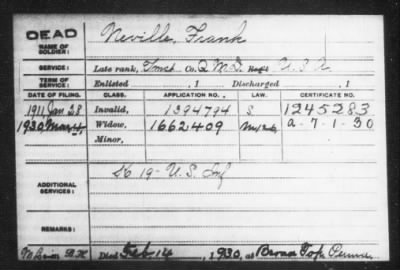 DEAD
NAME OF SOLDIER:
Neville, Frank
SERVICE:
Late rank, Co. Q M D, Reg't U. S. A.
TERM OF SERVICE:
Enlisted , 1 Discharged , 1
DATE OF FILING. CLASS. APPLICATION NO. LAW. CERTIFICATE NO.
1911 Jan 28 Invalid, 1394794 S. 1245283
1930 Mar 4 Widow, 1662,409 a-7-1-30
Minor,
ADDITIONAL SERVICES:
K 19- U.S. Inf
REMARKS:
Died Feb. 14 , 1930, at Twp. Penna.